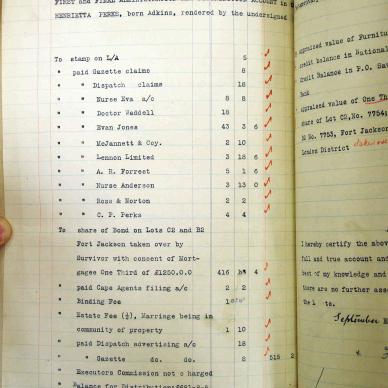 FIRST and FINAL ADMINISTRATION AND ACCOUNT IN
HENRIETTA PERKS, born Adkins, rendered by the undersigned
To stamp on L/A 5
" paid Gazette claims 8
" " Dispatch claims 18
" " Nurse Eva a/c 8 8
" " Doctor Waddell 18
" " Evan Jones 43 3 6
" " McJannett & Coy. 2 10
" " Lennon Limited 3 18 6
" " A. H. Forrest 5 1 6
" " Nurse Anderson 3 13 0
" " Ross & Norton 2 2
" " C. P. Perks 4 4
To share of Bond on Lots C2 and B2
Fort Jackson taken over by
Survivor with consent of Mort-
gagee One Third of £1250.0.0 416 4
" paid Cape Agents filing a/c 2 2
" Binding Fee 1
" Estate Fee (½), Marriage being in
community of property 1 10
" paid Dispatch advertising a/c 18
" " Gazette do. do. 2 515 2
" Executors Commission not charged
Balance for Distribution:
appraised value of Furnitu
credit balance in National
credit Balance in P.O. Sav
Bank
appraised value of One Th
share of Lot C2, No. 7754;
B2 No. 7753, Fort Jackson
London District
I hereby certify the abov
full and true account and
best of my knowledge and
there are no further asse
the 1 to.
September